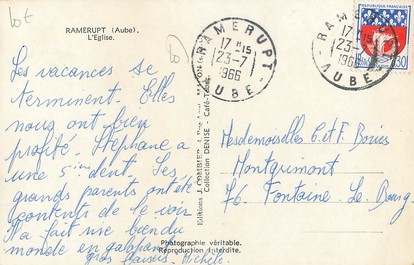 lot
RAMERUPT (Aube).
L'Eglise.
Les vacances se
terminent. Elles
nous ont bien
profité. Stéphane a
une 5ième dent. Ses
grands parents ont été
contents de le voir
Il a fait une
monde en
gros baisers. Michèle.
Editions J. COMBIER
Collection DENYSE - Café-Tabac
Photographie véritable.
Reproduction Interdite.
RAMERUPT
17 H 15
23-7
1966
AUBE
RAMERUPT
17 H 15
23-7
1966
AUBE
REPUBLIQUE FRANCAISE
0,30
Mesdemoiselles C. et F. Bories
Montgrimont
76. Fontaine. Le. Bourg.